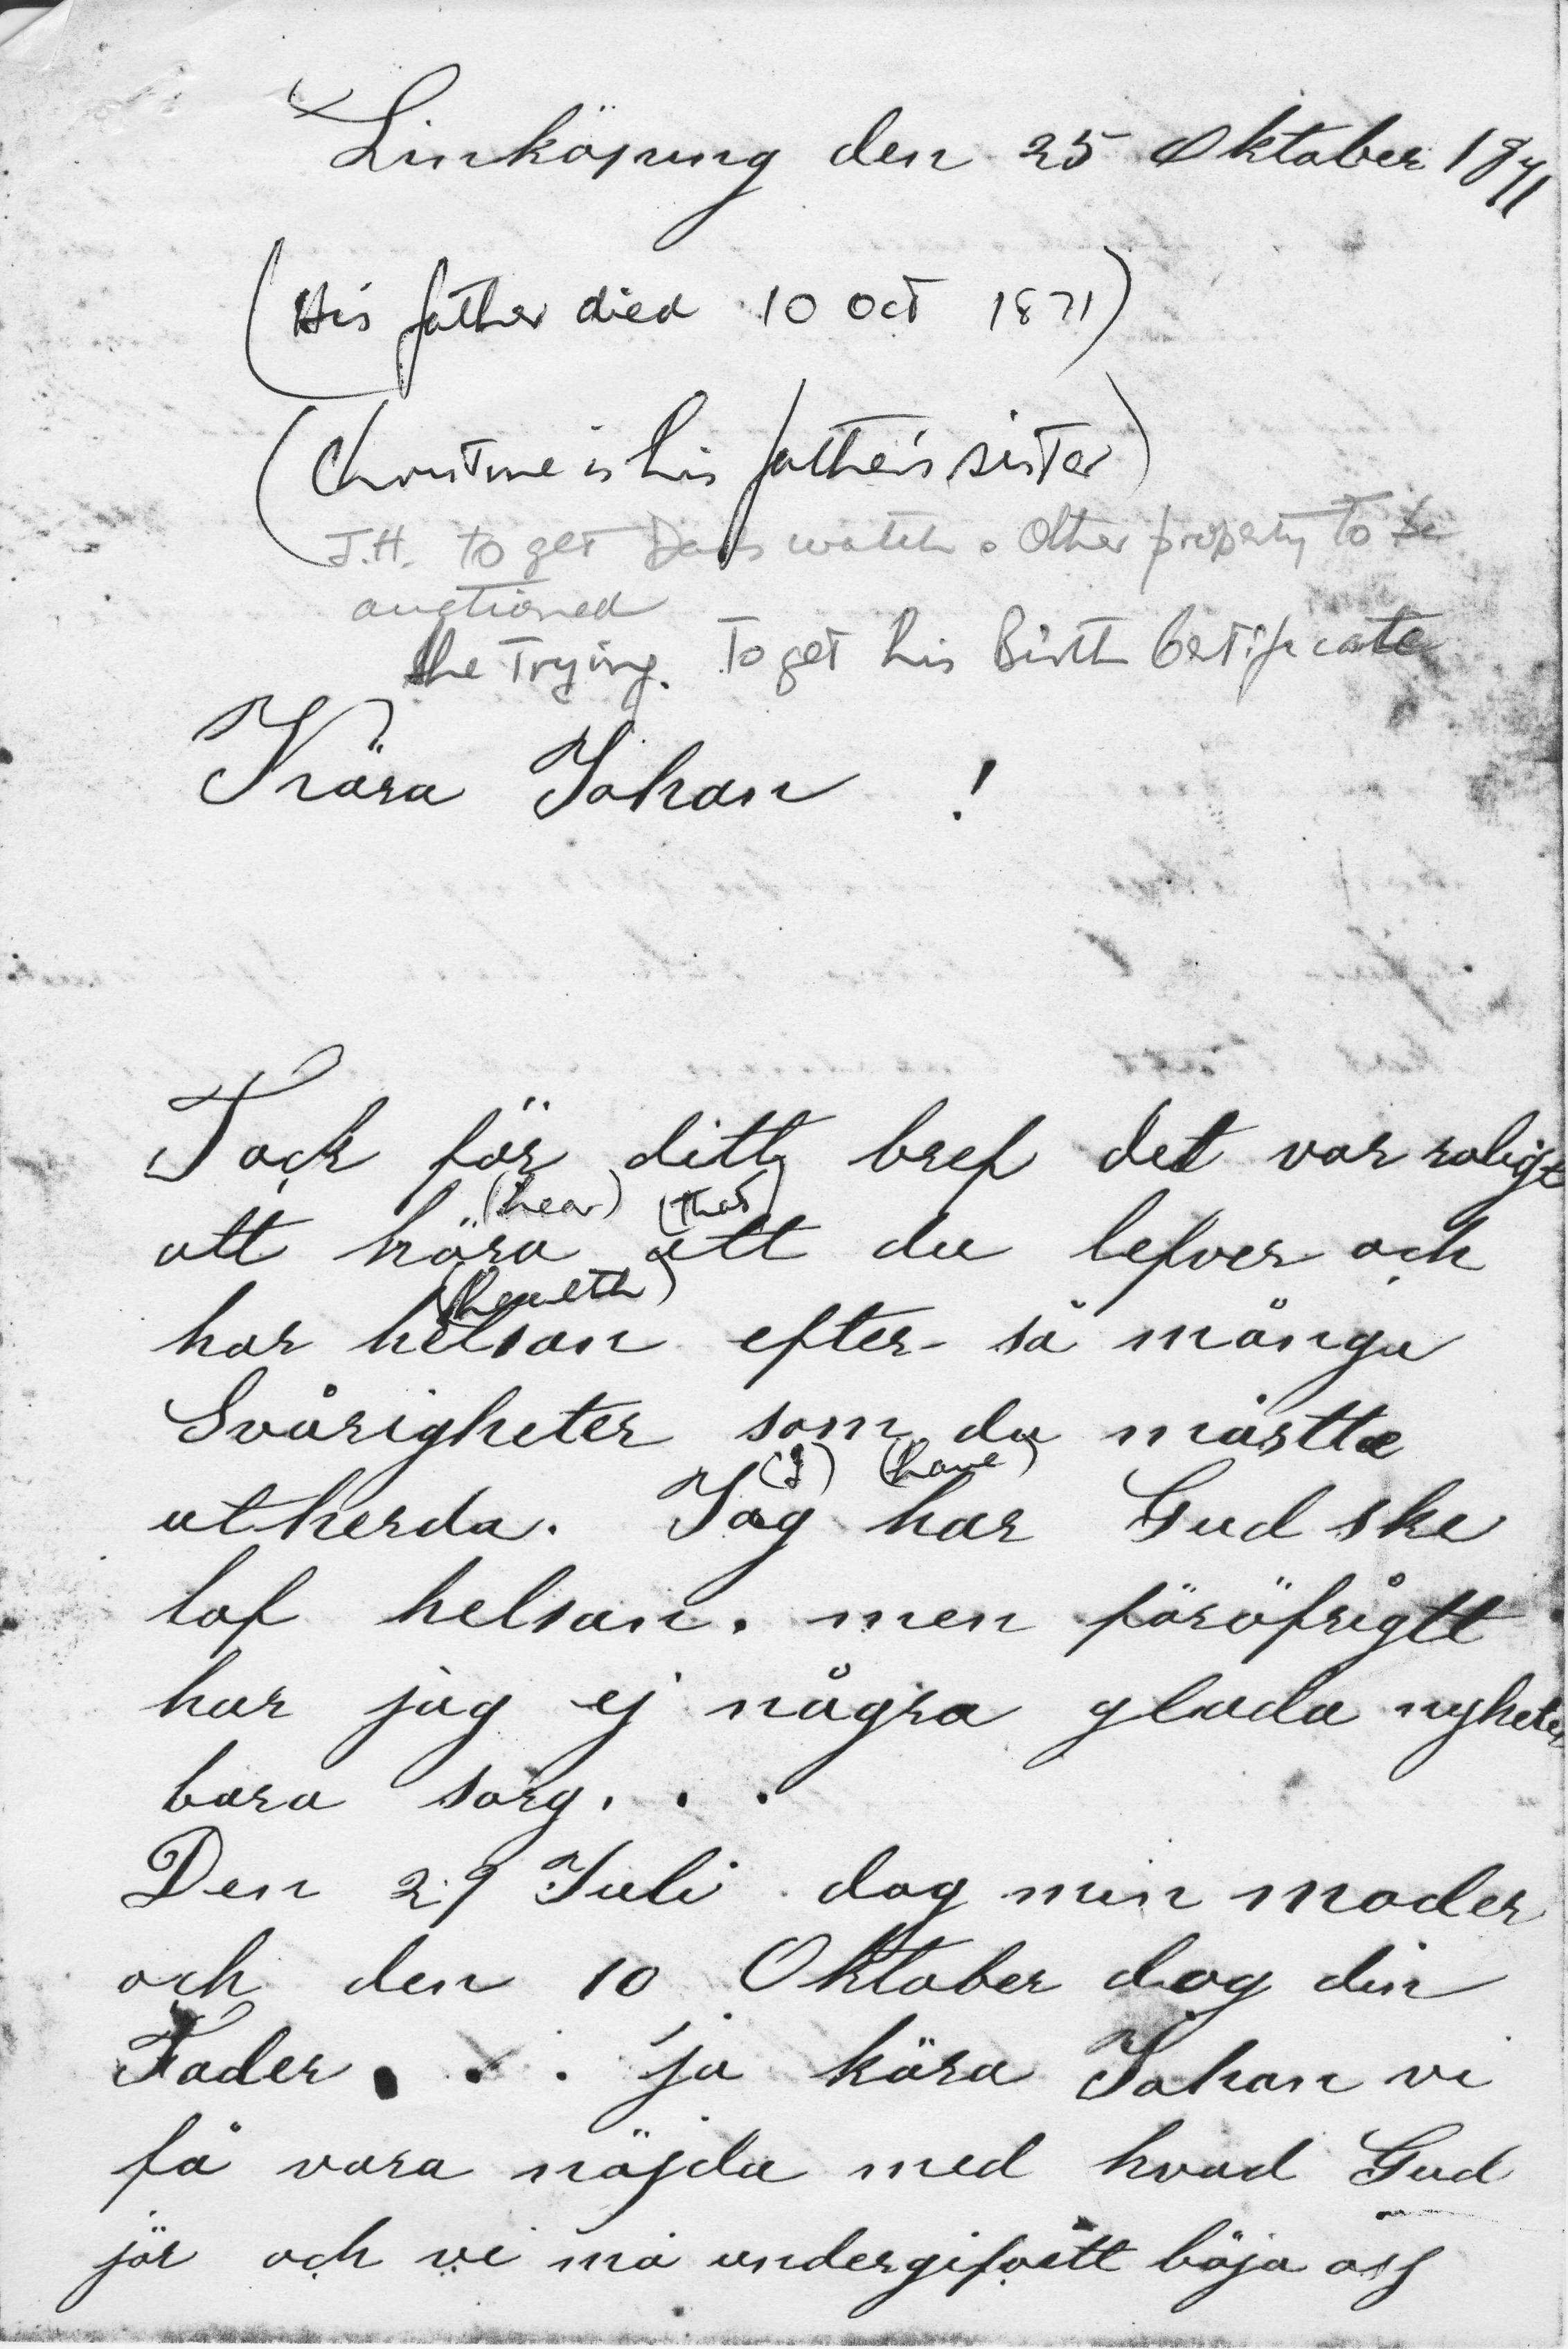 Linköping den 25 Oktober 1871
(His father died 10 Oct 1871)
(Christine is his father's sister)
J.H. to get Dad's watch. Other property to be
auctioned
She trying to get his Birth Certificate
Kära Johan !
Tack för ditt bref det var roligt
(hear) (that)
att höra att du lefver och
(health)
har helsan efter så många
Svårigheter som du måstte
(I) (have)
utherda. Jag har Gud ske
lof helsan. men föröfrigtt
har jag ej några glada nyheter
bara sorg. . .
Den 29 Juli dog min moder
och den 10 Oktober dog din
Fader . . . ja kära Johan vi
få vara nöjda med hvad Gud
jör och vi må undergifvitt böja oss